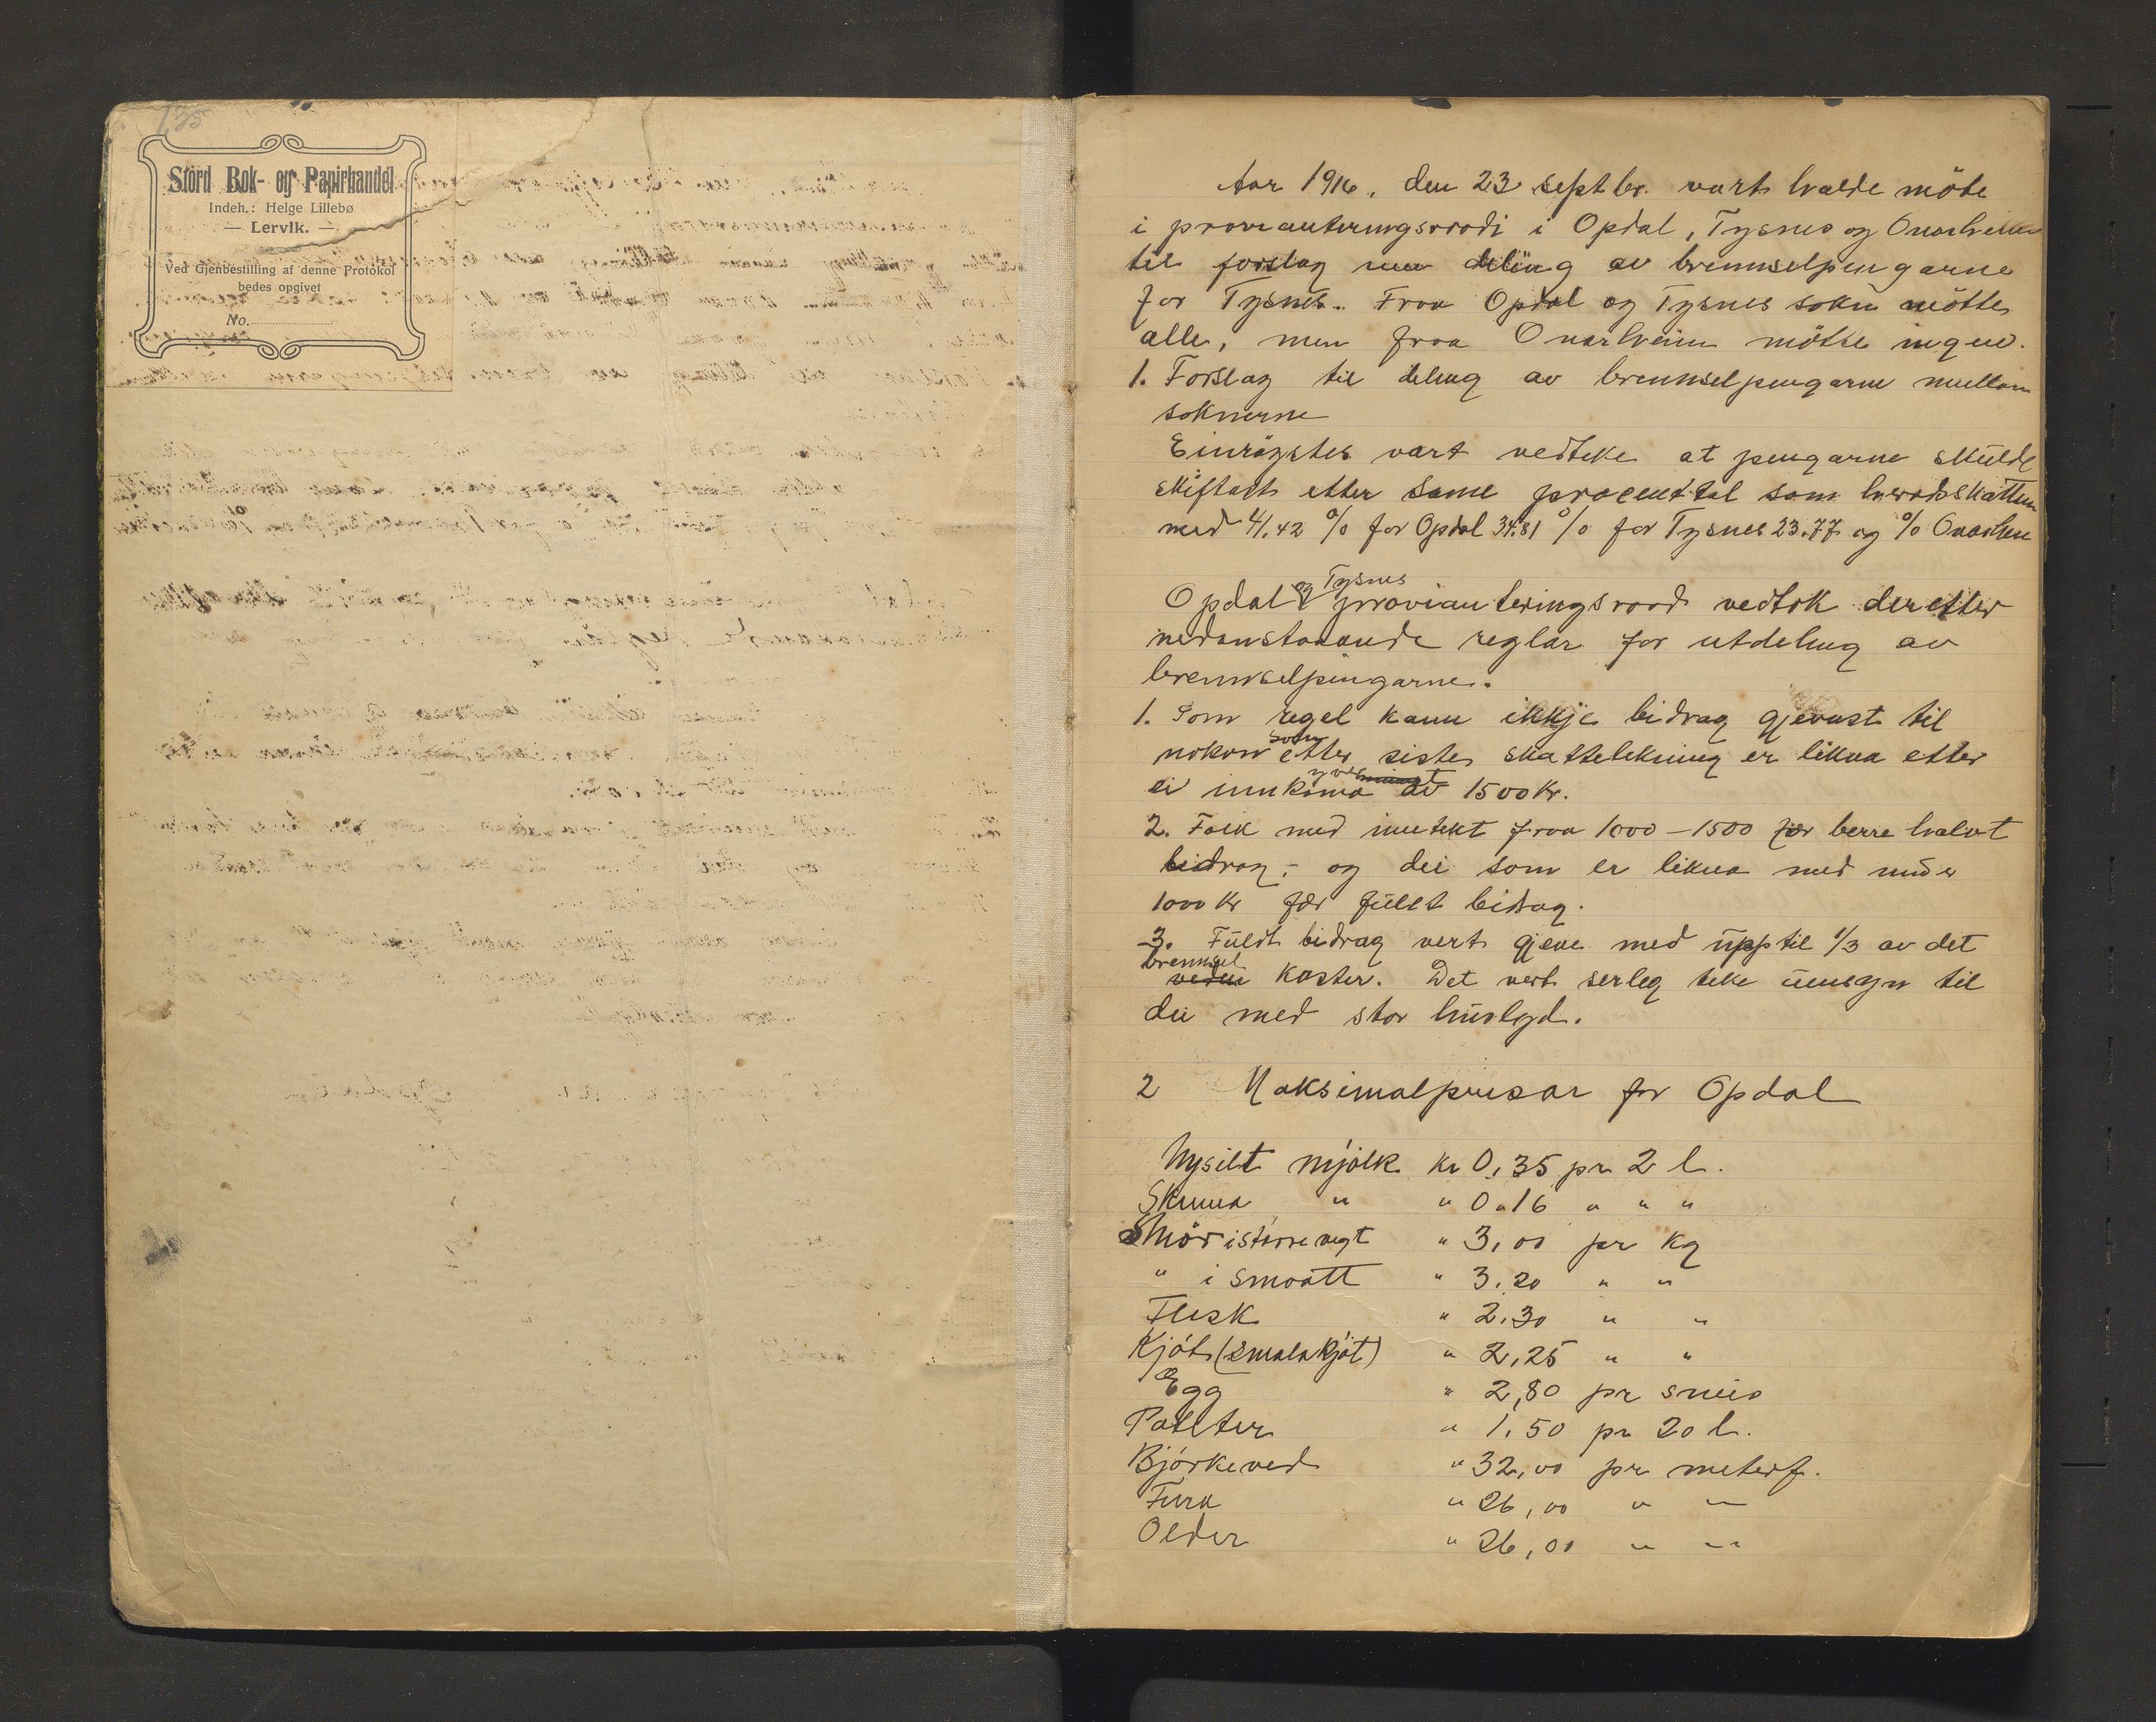 175
Stord Bok- og Papirhandel
Indeh.: Helge Lillebø
— Lervik. —
Ved Gjenbestilling af denne Protokol
bedes opgivet
No.
Aar 1916, den 23 septbr. vart halde möte
i provianteringsraadi i Opdal, Tysnes og Onarheim
til forslag um deling av brennselpengarne
for Tysnes. Fraa Opdal og Tysnes sokn mötte
alle, men fraa Onarheim mötte ingen.
1. Forslag til deling av brennselpengarne millom
soknerne
Einröystes vart vedteke at pengarne skulde
skiftast etter same procenttal som heradskatten
med 41.42 % for Opdal 34.81 % for Tysnes 23.77 og % Onarheim
Opdal og Tysnes provianteringsraad vedtok deretter
nedanstaaande reglar for utdeling av
brennselpengarne.
1. Som regel kann ikkje bidrag gjevast til
nokon som etter siste skattelikning er likna etter
ei innkoma yver 1500 kr.
2. Folk med inntekt fraa 1000 – 1500 fær berre halvt
bidrag, – og dei som er likna med under
1000 kr fær fullt bidrag.
3. Fuldt bidrag vert gjeve med upptil 1/3 av det
brennsel veden koster. Det vert serleg teke umsyn til
dei med stor huslyd.
2 Maksimalprisar for Opdal
Nysilt mjölk kr 0,35 pr 2 l.
Skuma " " 0,16 " " "
Smör i större vegt " 3,00 pr kg
" i smaatt " 3.20 " "
Flesk " 2.30 " "
Kjöt (smalakjöt) " 2,25 " "
Egg " 2,80 pr sneis
Poteter " 1.50 pr 20 l.
Björkeved " 32,00 pr meterf.
Fura " 26,00 " "
Older " 26,00 " "